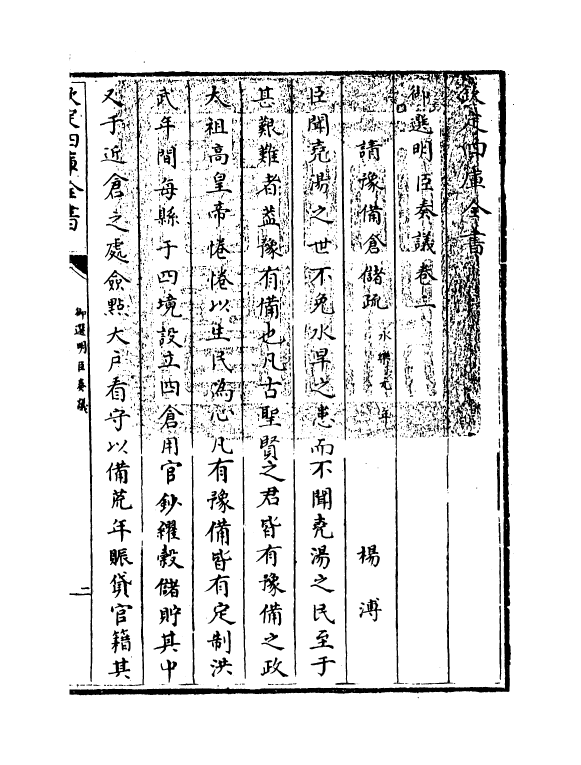 欽定四庫全書
御選明臣奏議卷二
請豫備倉儲疏永樂元年 楊溥
臣聞堯湯之世不免水旱之患而不聞堯湯之民至于
甚艱難者葢豫有備也凡古聖賢之君皆有豫備之政
太祖高皇帝惓惓以生民為心凡有豫備皆有定制洪
武年間每縣于四境設立四倉用官鈔糴穀儲貯其中
又于近倉之處僉點大戶看守以備荒年賑貸官籍其
欽定四庫全書
御選明臣奏議